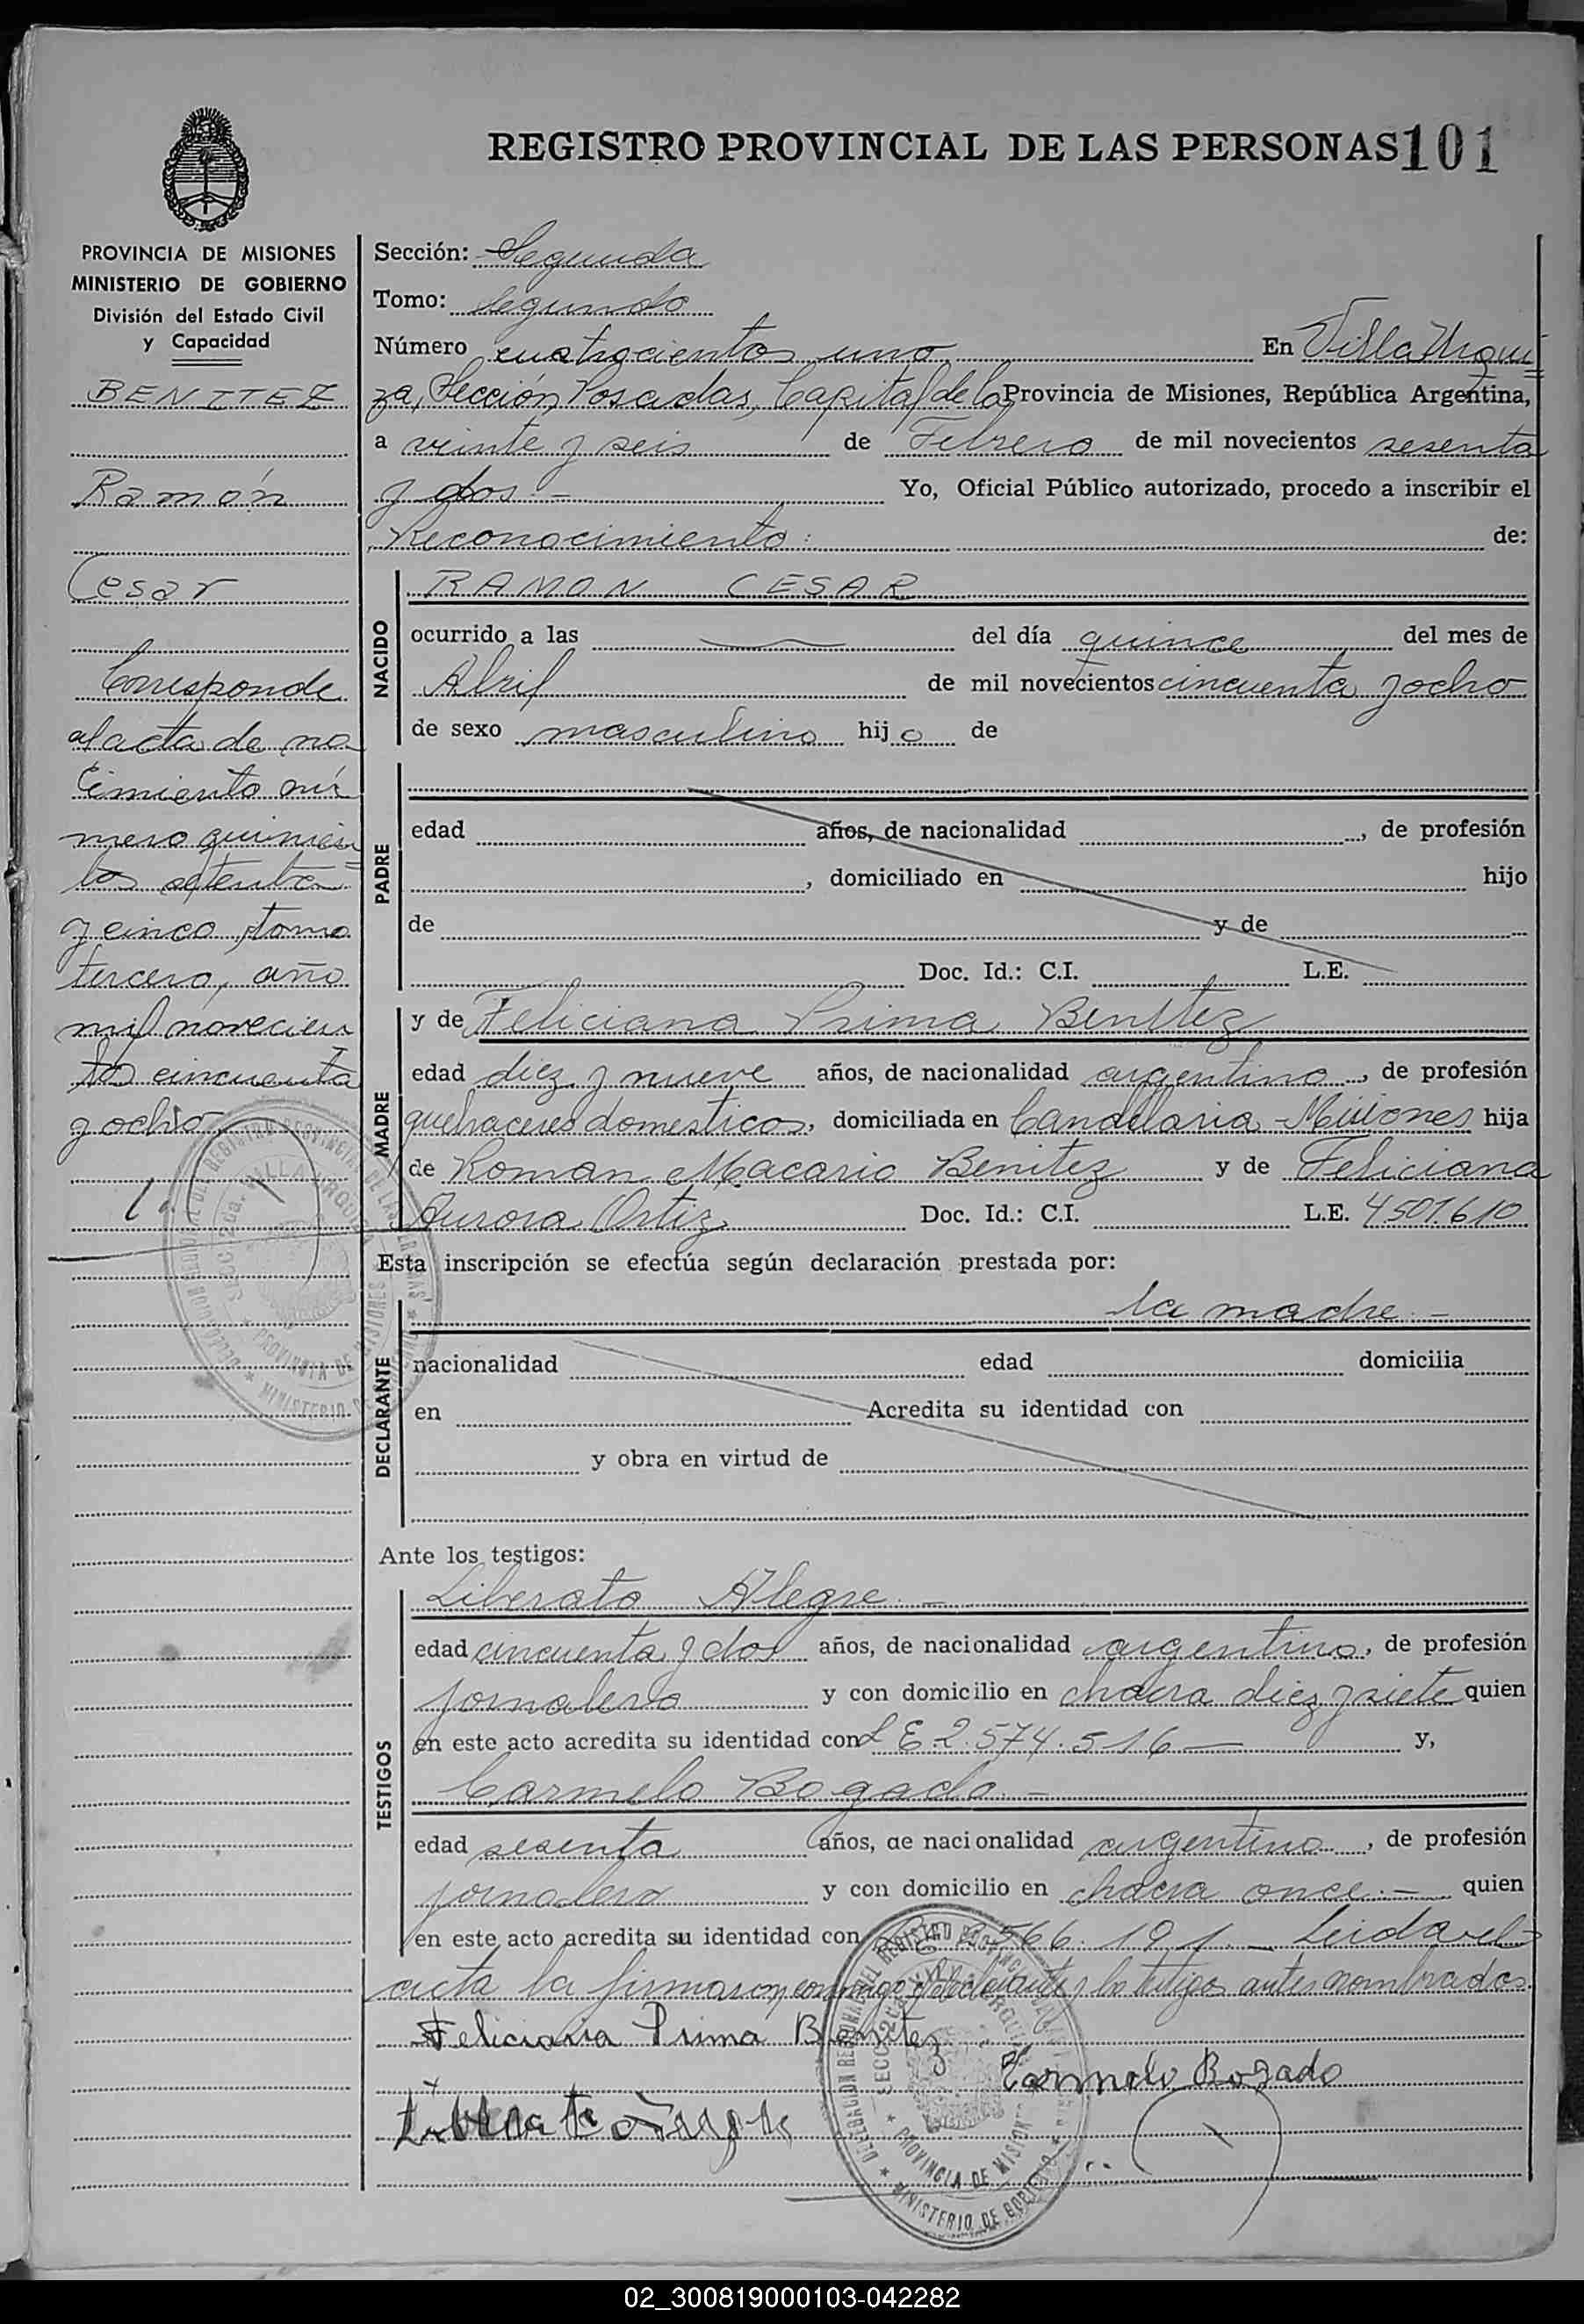 REGISTRO PROVINCIAL DE LAS PERSONAS 101
PROVINCIA DE MISIONES
MINISTERIO DE GOBIERNO
División del Estado Civil
y Capacidad
BENITEZ
Ramón
Cesar
Corresponde
al acta de na
cimiento nú
mero quinien
tos setenta
y cinco, tomo
tercero, año
mil novecien
tos cincuenta
y ocho
Sección: Segunda
Tomo: Segundo
Número cuatrocientos uno En Villa Urqui
za, Sección Posadas, Capital de la Provincia de Misiones, República Argentina,
a veinte y seis de Febrero de mil novecientos sesenta
y dos.- Yo, Oficial Público autorizado, procedo a inscribir el
Reconocimiento: de:
NACIDO
RAMON CESAR
ocurrido a las del día quince del mes de
Abril de mil novecientos cincuenta y ocho
de sexo masculino hijo de
PADRE
edad años, de nacionalidad , de profesión
, domiciliado en hijo
de y de
Doc. Id.: C.I. L.E.
MADRE
y de Feliciana Prima Benitez
edad diez y nueve años, de nacionalidad argentina, de profesión
quehaceres domesticos, domiciliada en Candelaria - Misiones hija
de Roman Macario Benitez y de Feliciana
Aurora Ortiz Doc. Id.: C.I. L.E. 4507.610
Esta inscripción se efectúa según declaración prestada por:
DECLARANTE
la madre.-
nacionalidad edad domicilia
en Acredita su identidad con
y obra en virtud de
Ante los testigos:
TESTIGOS
Liberato Alegre.-
edad cincuenta y dos años, de nacionalidad argentino, de profesión
jornalero y con domicilio en chacra diez y siete quien
en este acto acredita su identidad con L E 2.574.516 — y,
Carmelo Bogado.-
edad sesenta años, de nacionalidad argentino, de profesión
jornalero y con domicilio en chacra once.- quien
en este acto acredita su identidad con 566.191.- Leida el
acta la firmaron conmigo los testigos antes nombrados.
Feliciana Prima Benitez
Carmelo Bogado
DELEGACION REGIONAL DEL REGISTRO PROVINCIAL DE LAS PERSONAS
SECC. 2da. VILLA URQUIZA
PROVINCIA DE MISIONES
MINISTERIO DE GOBIERNO
02_300819000103-042282